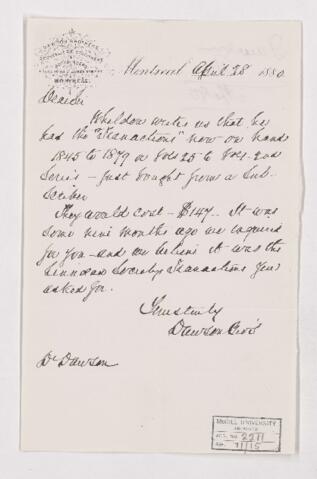 DAWSON BROTHERS
MONTREAL
Montreal April 28 1880
Dear Sir
Wheldon writes us that he
has the "Transactions" now on hand
1845 to 1879 or Vols 25 to Vol 1 - 2nd
Series - just bought from a sub-
scriber
They would cost - $147.. It was
some nine months ago we enquired
for you - and we believe it was the
Linnean Society's Transactions you
asked for.
Yours truly
Dawson Bros
Dr Dawson
McGILL UNIVERSITY
ARCHIVES
ACC. NO. 2211
REF. 1/15